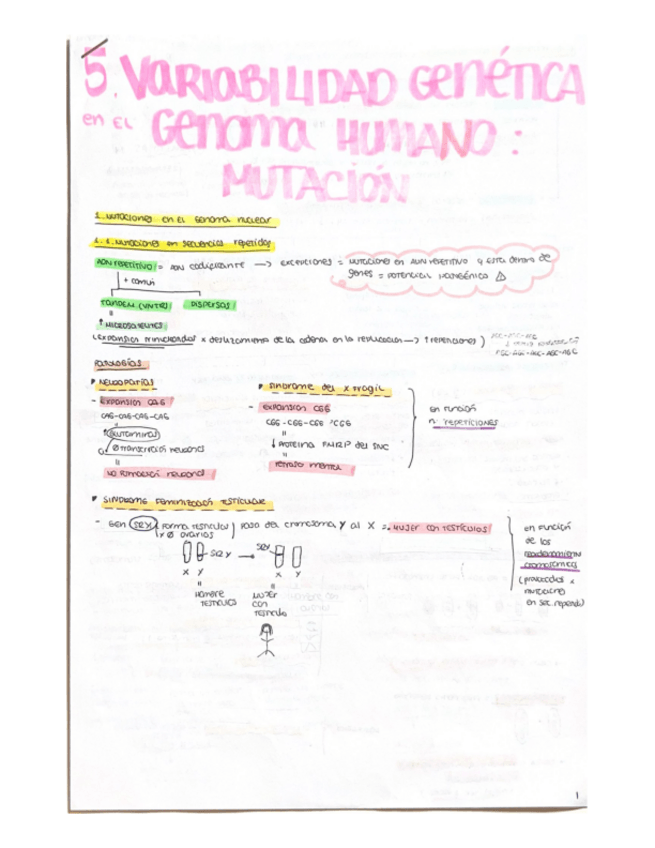 5. VARIABILIDAD GENÉTICA
en EL GENOMA HUMANO:
MUTACIÓN
1. MUTACIONES EN EL GENOMA NUCLEAR
1.1. MUTACIONES en SECUENCIAS repetidas
ADN REPETITIVO = ADN codificante → EXCEPCIONES = MUTACIONES en ADN REPETITIVO y ESTÁ dentro de
genes = POTENCIAL PATOGÉNICO ⚠
+ común
TANDEM (VNTR) DISPERSAS
=
↑ MICROSATÉLITES
(EXPANSIÓN trinucleótidos x deslizamiento de la cadena en la replicación → ↑ repeticiones)
AGC-AGC-AGC-AGC-AGC
PATOLOGÍAS
NEUROPATÍAS
- EXPANSIÓN CAG
CAG-CAG-CAG-CAG
=
↑ Glutaminas
Ø transcripción neuronas
=
NO FORMACIÓN neuronas
SÍNDROME del X FRÁGIL
- EXPANSIÓN CGG
CGG-CGG-CGG-CGG
=
↓ PROTEÍNA FMRP del SNC
=
RETRASO MENTAL
en función
nº repeticiones
SÍNDROME FEMINIZACIÓN TESTICULAR
- GEN SRY forma testículos y Ø ovarios) paso del cromosoma Y al X = MUJER CON TESTÍCULOS
SRY → SRY
X Y X Y
= =
HOMBRE
TESTÍCULOS
MUJER
CON
TESTÍCULO
en función
de los
reordenamientos
cromosómicos
(producidos x
mutaciones
en sec. repetids)
1